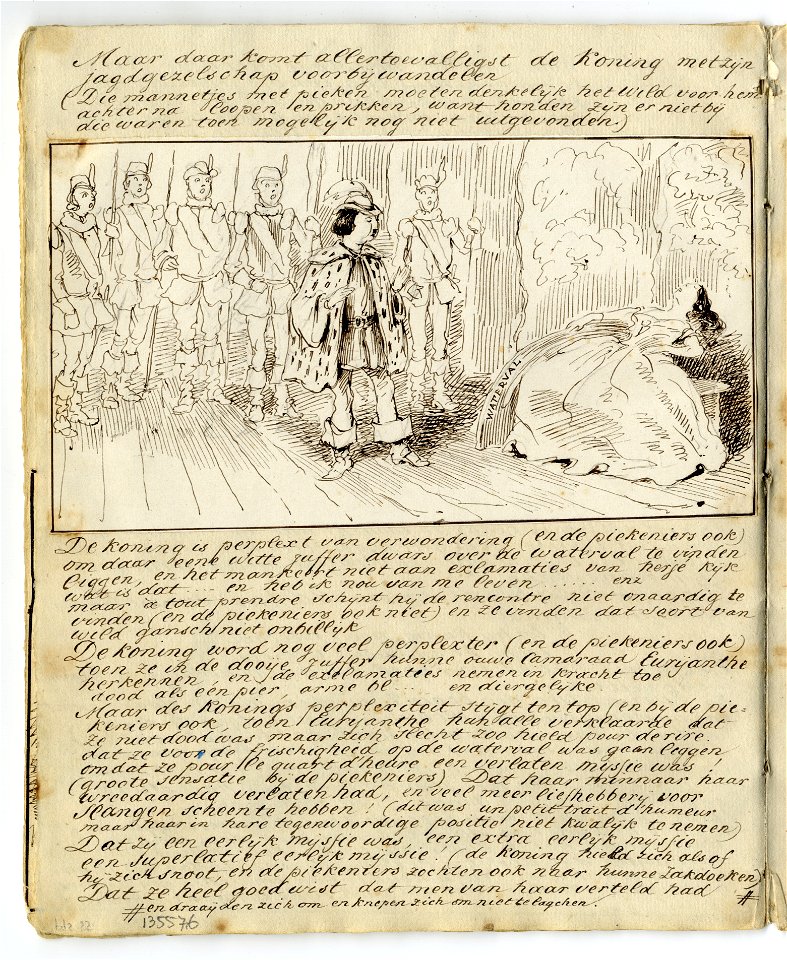 Maar daar komt allertoevalligst de Koning met zijn
jagdgezelschap voorbijwandelen
(Die mannetjes met pieken moeten denkelijk het wild voor hem
achterna loopen en prikken, want honden zijn er niet bij
die waren toen mogelijk nog niet uitgevonden.)
WATERVAL
De koning is perplext van verwondering (en de piekeniers ook)
om daar eene witte juffer dwars over de waterval te vinden
liggen, en het mankeert niet aan exlamaties van herje kijk
wat is dat .... en heb ik nou van me leven ........ enz
maar à tout prendre schijnt hij de rencontre niet onaardig te
vinden (en de piekeniers ook niet) en ze vinden dat soort van
wild gansch niet onbillijk
De koning word nog veel perplexter (en de piekeniers ook)
toen ze in de dooije juffer hunne ouwe kamdraad Euryanthe
herkennen, en de exclamaties nemen in kracht toe
dood als een pier, arme bl .... en diergelijke
Maar des Konings perplexiteit stijgt ten top (en bij de pie-
keniers ook, toen Euryanthe hun alle verklaarde dat
ze niet dood was maar zich slecht zoo hield pour de rire.
dat ze voor de frischigheid op de waterval was gaan leggen
omdat ze pour le quart d'heure een verlaten mijsje was!
(groote sensatie bij de piekeniers) Dat haar minnaar haar
wreedaardig verlaten had, en veel meer liefhebberij voor
slangen scheen te hebben! (dit was un petit trait d'humeur
maar haar in hare tegenwoordige positie niet kwalijk te nemen)
Dat zij een eerlijk mijsje was, een extra eerlijk mijsje
een superlatief eerlijk mijssie! (de koning hield zich als of
hij zich snoot, en de piekeniers zochten ook naar hunne zakdoeken)
Dat ze heel goed wist dat men van haar verteld had #
# en draaijden zich om en knepen zich om niet te lagchen.
135576